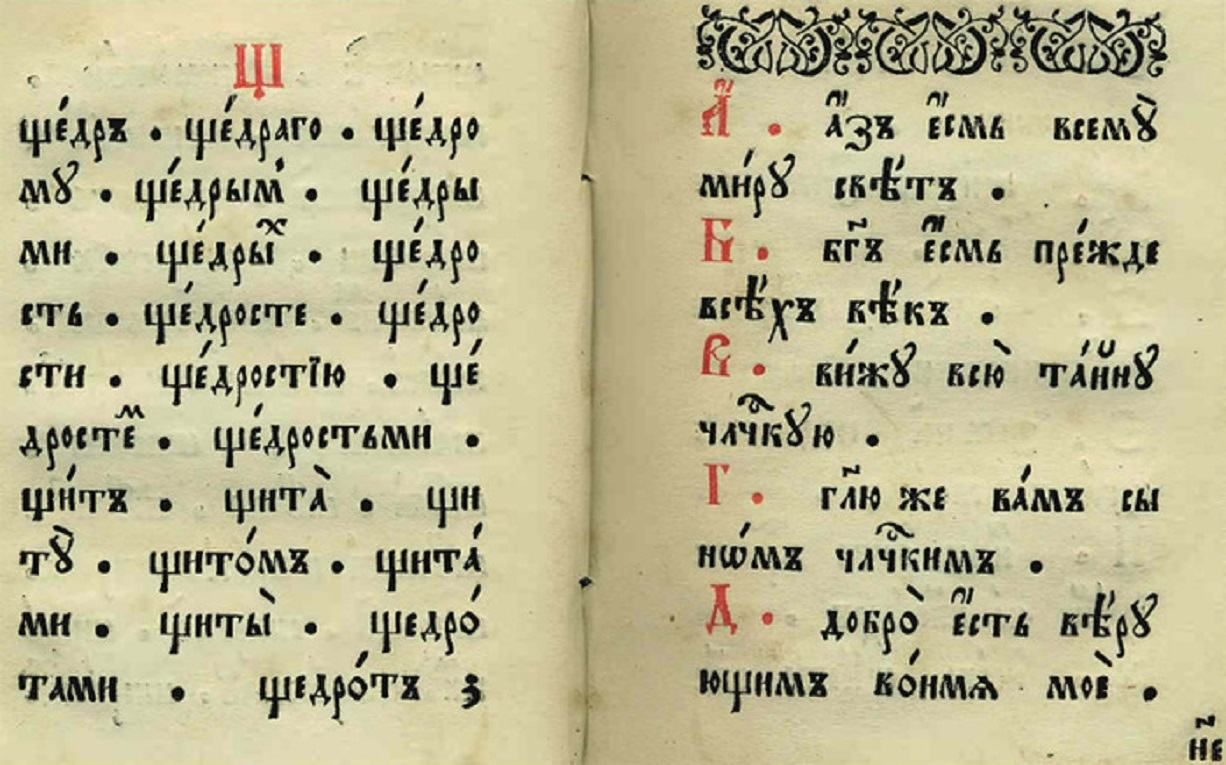 Щ
ще́дръ . ще́драго . ще́дро
мꙋ . ще́дрым̾ . ще́дры
ми . ще́дрыⷯ . ще́дро
сть . ще́дросте . ще́дро
сти . ще́дростїю . ще́
дростеⷨ . ще́дростьми .
щи́тъ . щита̀ . щи
тꙋ̀ . щито́мъ . щита́
ми . щиты̀ . щедро́
тами . щедро́тъ з
А҆́ . а҆́зъ є҆́смь всемꙋ̀
ми́рꙋ свѣ́тъ .
Б . бг҃ъ є҆́смь пре́жде
всѣ́хъ вѣ́къ .
В . ви́жꙋ всю̀ та́йнꙋ
члч҃кꙋю .
Г . гл҃ю же ва́мъ сы
нѡ́мъ члч҃кимъ .
Д . добро̀ є҆́сть вѣ́рꙋ
ющимъ во́имѧ моѐ .
н҃е